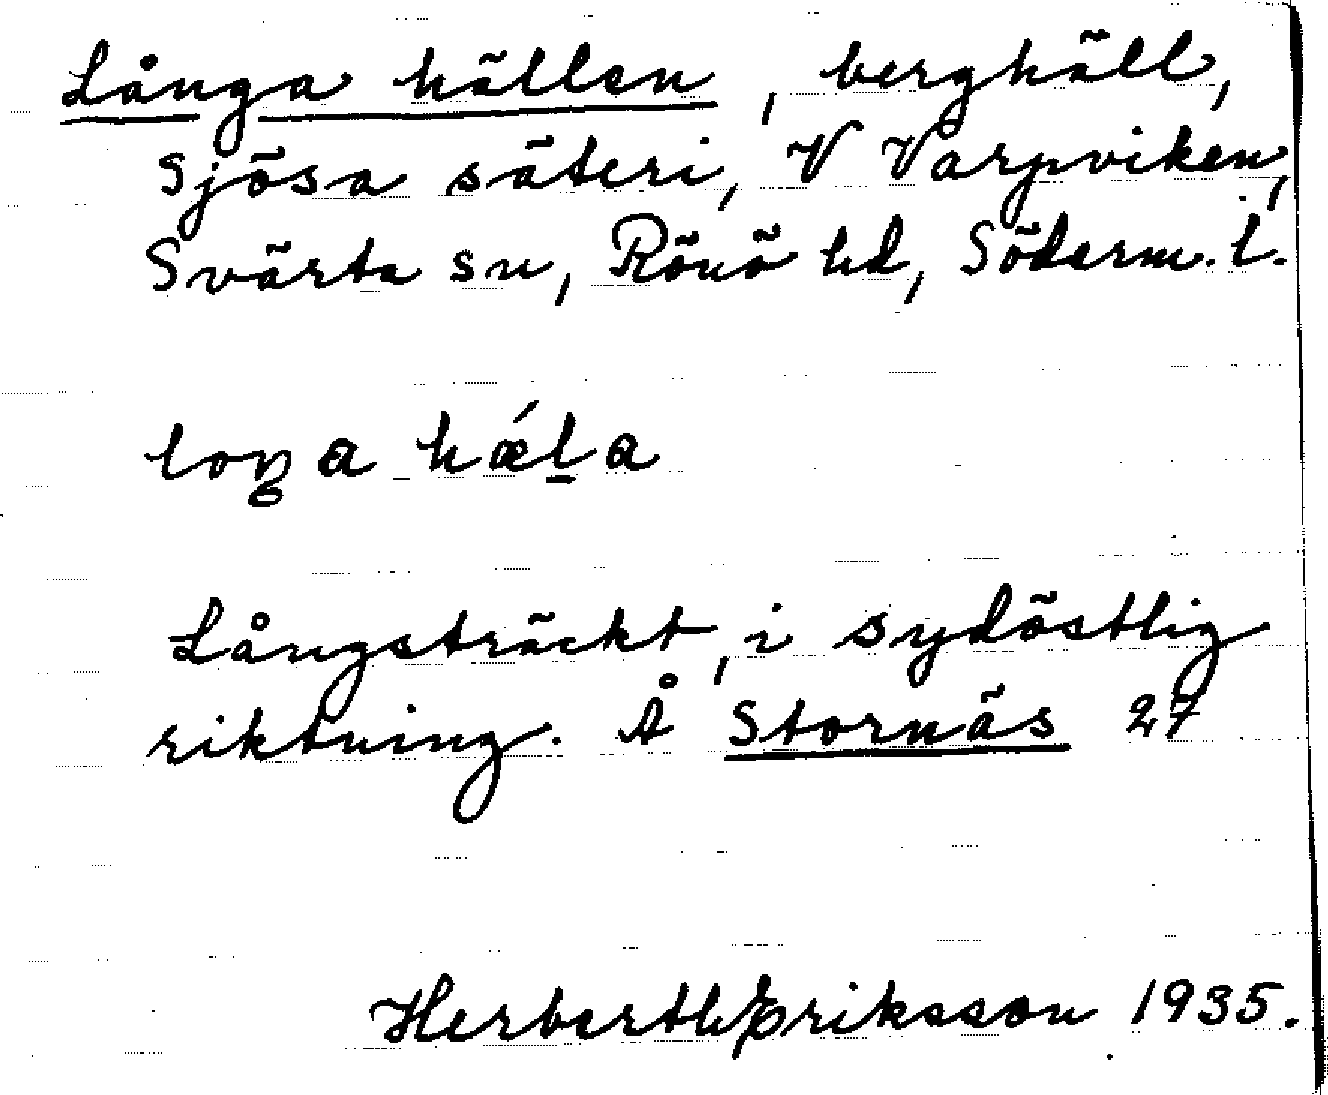 Långa hällen, berghäll,
Sjösa säteri, V Varpviken,
Svärta sn, Rönö hd, Söderm. l.
loŋa hǽl̠a
Långsträckt, i sydöstlig
riktning. Å Stornäs 27
Herberth Eriksson 1935.